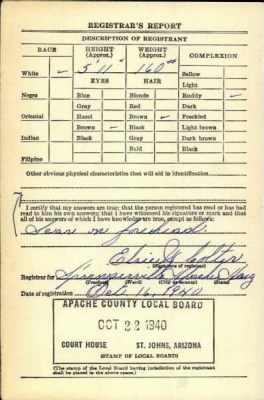 REGISTRAR'S REPORT
DESCRIPTION OF REGISTRANT
RACE HEIGHT (Approx.) WEIGHT (Approx.) COMPLEXION
White 5' 11" 160 Sallow
EYES HAIR Light
Negro Blue Blonde Ruddy
Gray Red Dark
Oriental Hazel Brown Freckled
Brown Black Light brown
Indian Black Gray Dark brown
Bald Black
Filipino
Other obvious physical characteristics that will aid in identification
I certify that my answers are true; that the person registered has read or has had
read to him his own answers; that I have witnessed his signature or mark and that
all of his answers of which I have knowledge are true, except as follows:
Scar on forehead.
(Signature of registrar)
Registrar for Apache Ariz
(Precinct) (Ward) (City or county) (State)
Date of registration Oct. 16, 1940
APACHE COUNTY LOCAL BOARD
OCT 22 1940
COURT HOUSE ST. JOHNS, ARIZONA
(STAMP OF LOCAL BOARD)
(The stamp of the Local Board having jurisdiction of the registrant
shall be placed in the above space.)